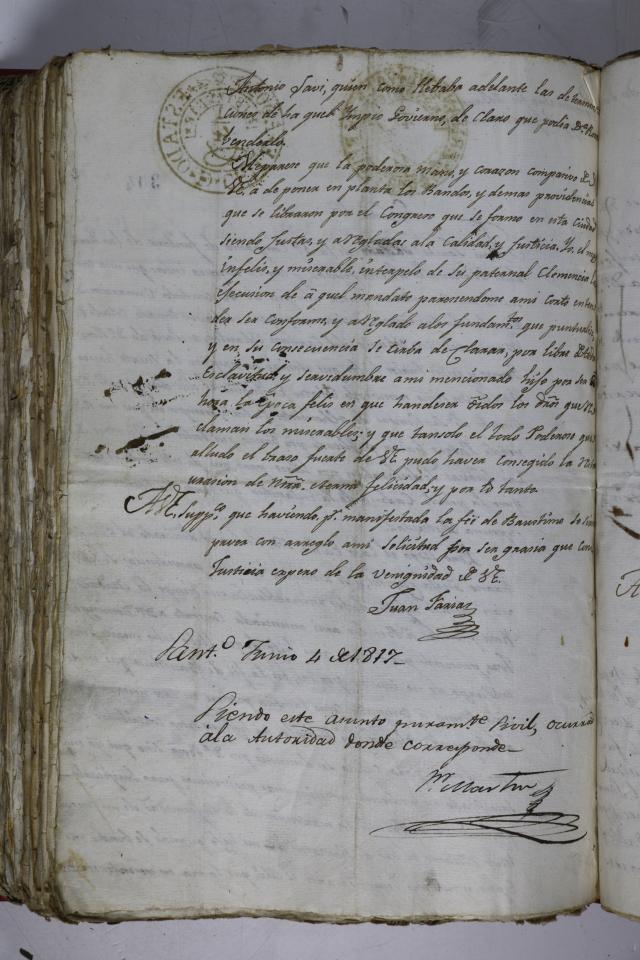 Antonio Savi, quien como llebaba adelante las determina
ciones de ha quel Impio Govierno, de Claro que podia
benderlo.
Meparese que la poderosa mano, y corazon compasivo de
VE. á de poner en planta los Bandos, y demas providencias
que se libraron por el Congreso que se formo en esta Ciudad
siendo Justas, y arregladas ala Calidad, y Justicia. Yo, el
infelis, y miserable, interpelo de su paternal Clemencia la
Esecusion de á quel mandato paresiendome ami corto enten
der ser conforme, y arreglado alos fundam.tos que puntual
y en su consecuencia se sirba de Clarar, por libre de
Esclavitud, y servidumbre ami mencionado hijo por ser
hora la época felis en que handeser oidos los que
claman los miserables; y que tansolo el todo Poderoso que
alludo el braso fuerte de VE. pudo haver conseguido la
uracion de ntra. eterna felicidad, y por lo tanto
A VE. supp.co que haviendo p.r manifestada la feé de Baustimo se sir
provea con arreglo ami solicitud por ser grasia que con
Justicia espero de la venignidad de VE.
Juan Farias
Sant.o Junio 4 de 1817
Siendo este asunto puram.te Civil, ocurra
ala Autoridad donde corresponde
Sn. Martin